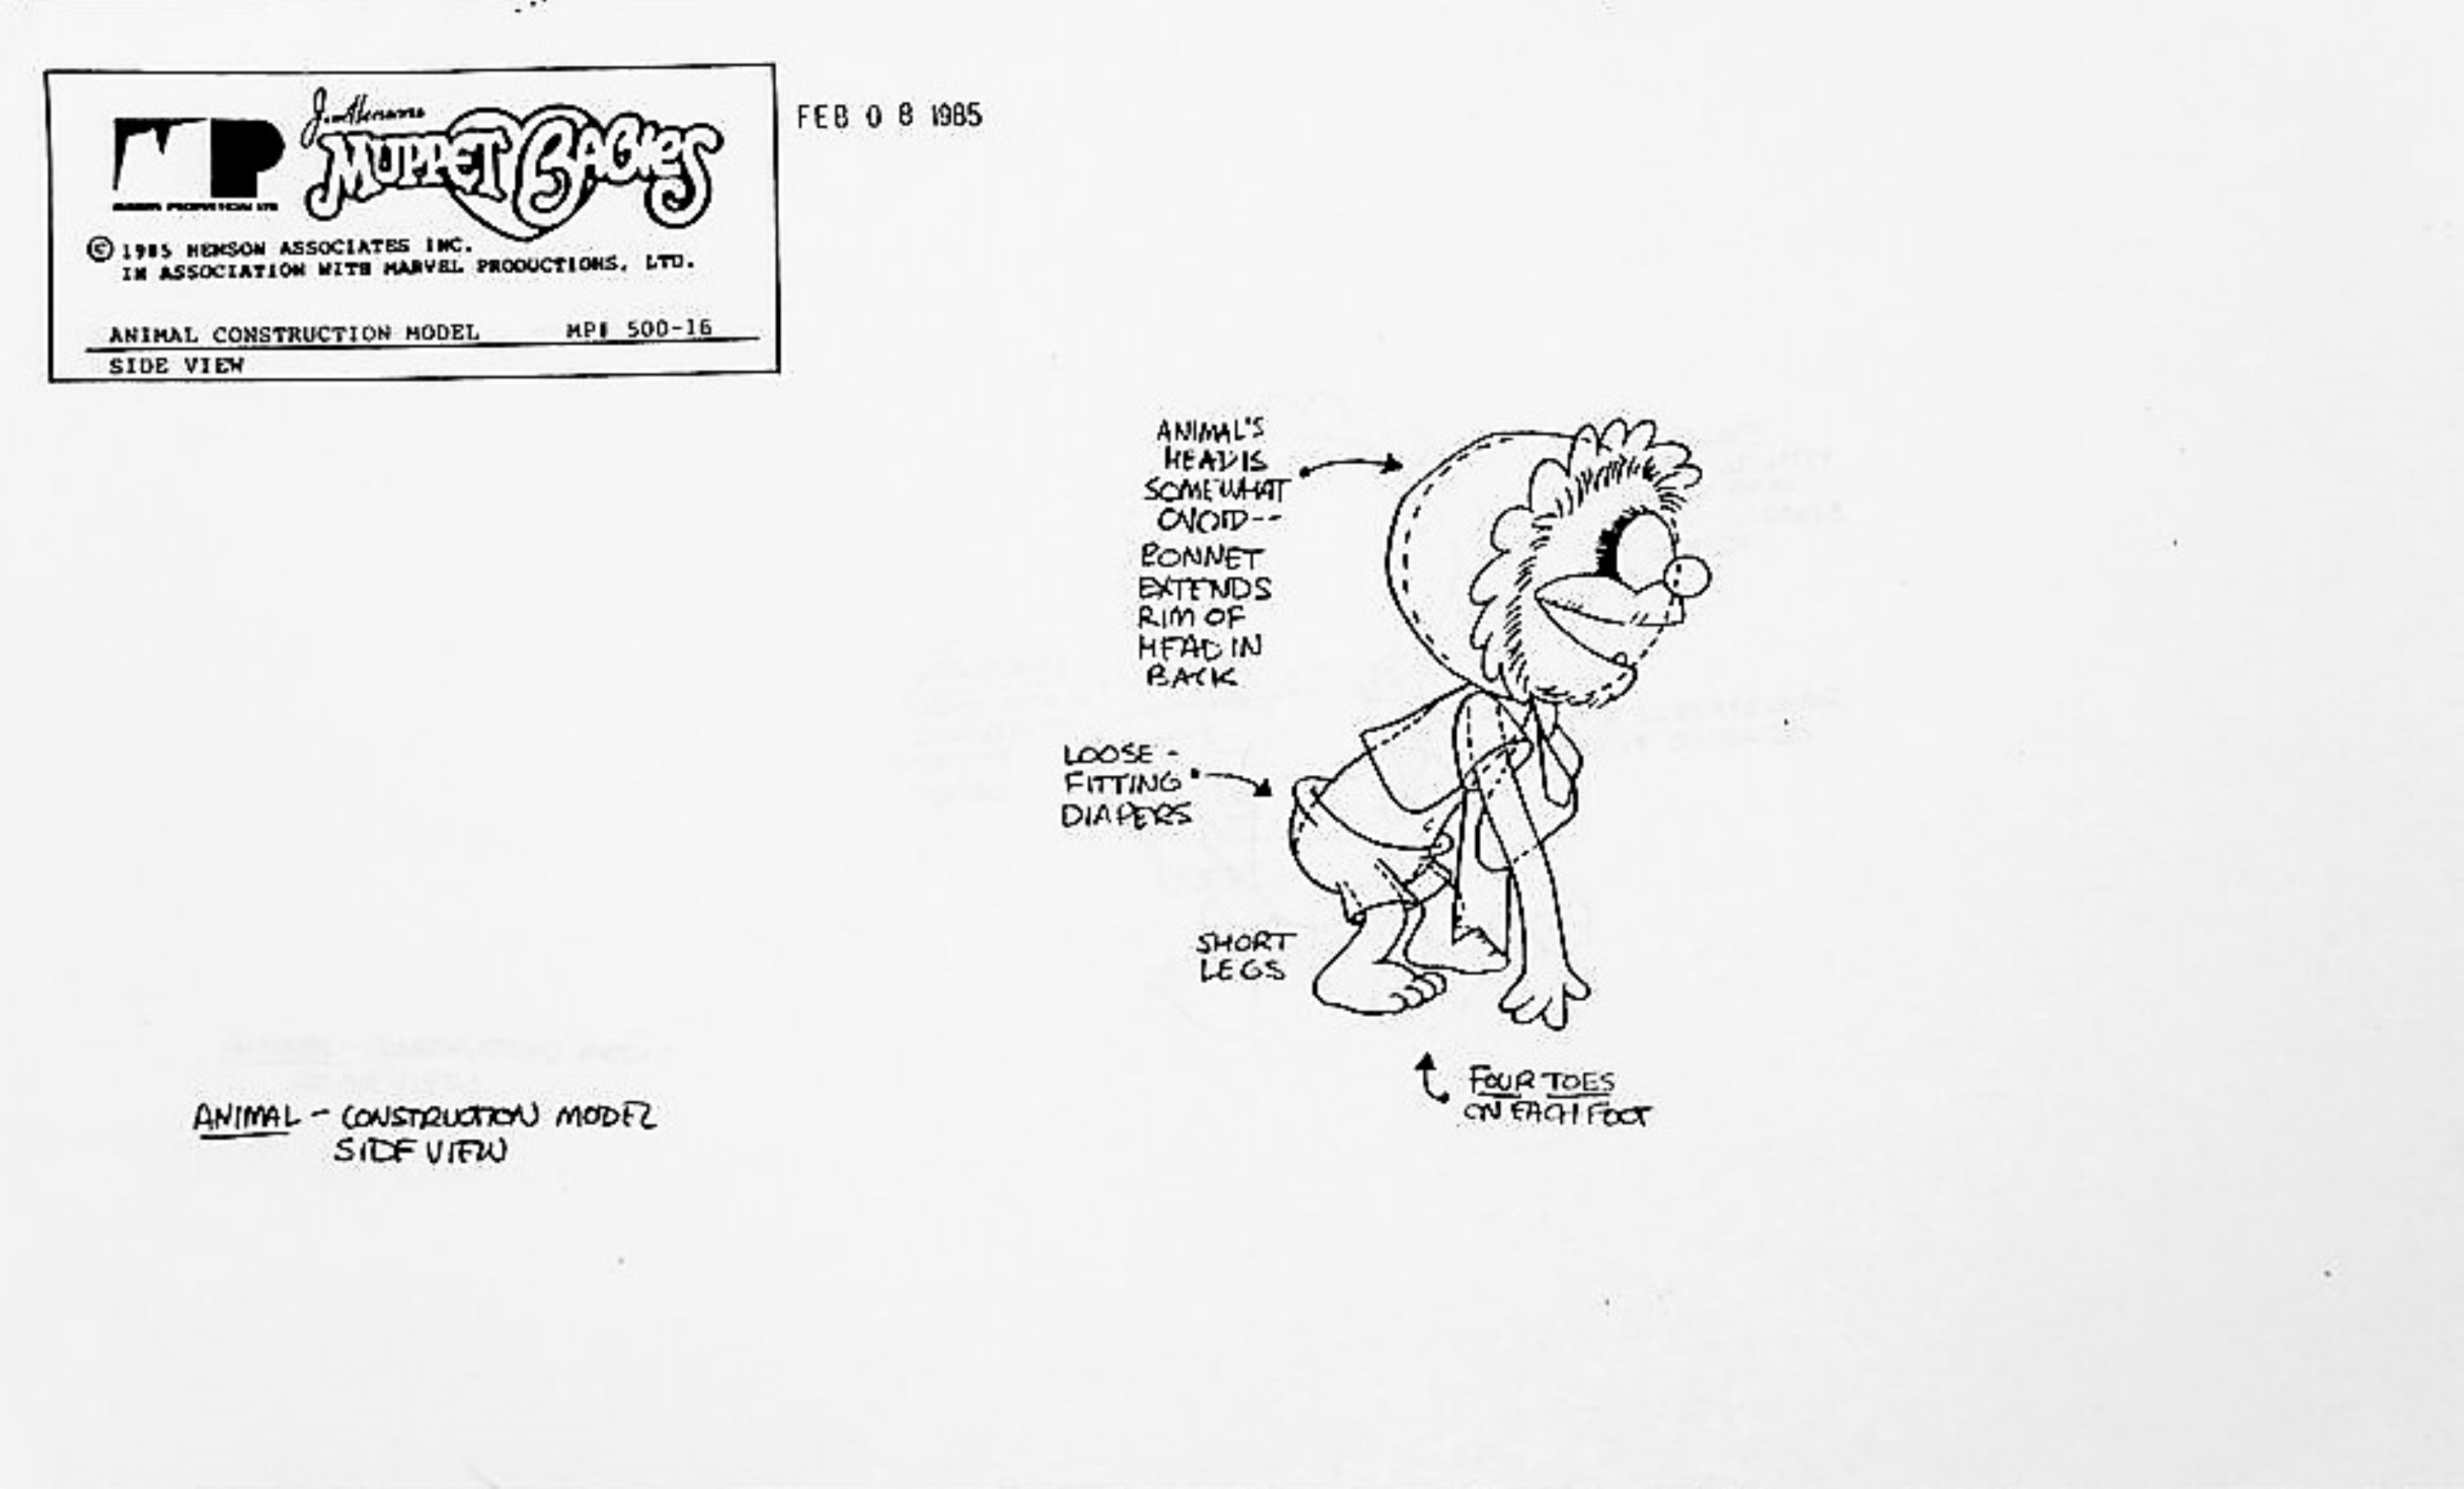 Jim Henson's
MUPPET BABIES
FEB 08 1985
© 1985 HENSON ASSOCIATES INC.
IN ASSOCIATION WITH MARVEL PRODUCTIONS, LTD.
ANIMAL CONSTRUCTION MODEL MP# 500-16
SIDE VIEW
ANIMAL'S
HEAD IS
SOMEWHAT
OVOID--
BONNET
EXTENDS
RIM OF
HEAD IN
BACK
LOOSE-
FITTING
DIAPERS
SHORT
LEGS
FOUR TOES
ON EACH FOOT
ANIMAL - CONSTRUCTION MODEL
SIDE VIEW